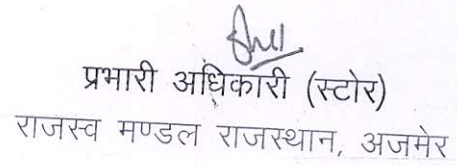 प्रभारी अधिकारी (स्टोर)
राजस्व मण्डल राजस्थान, अजमेर